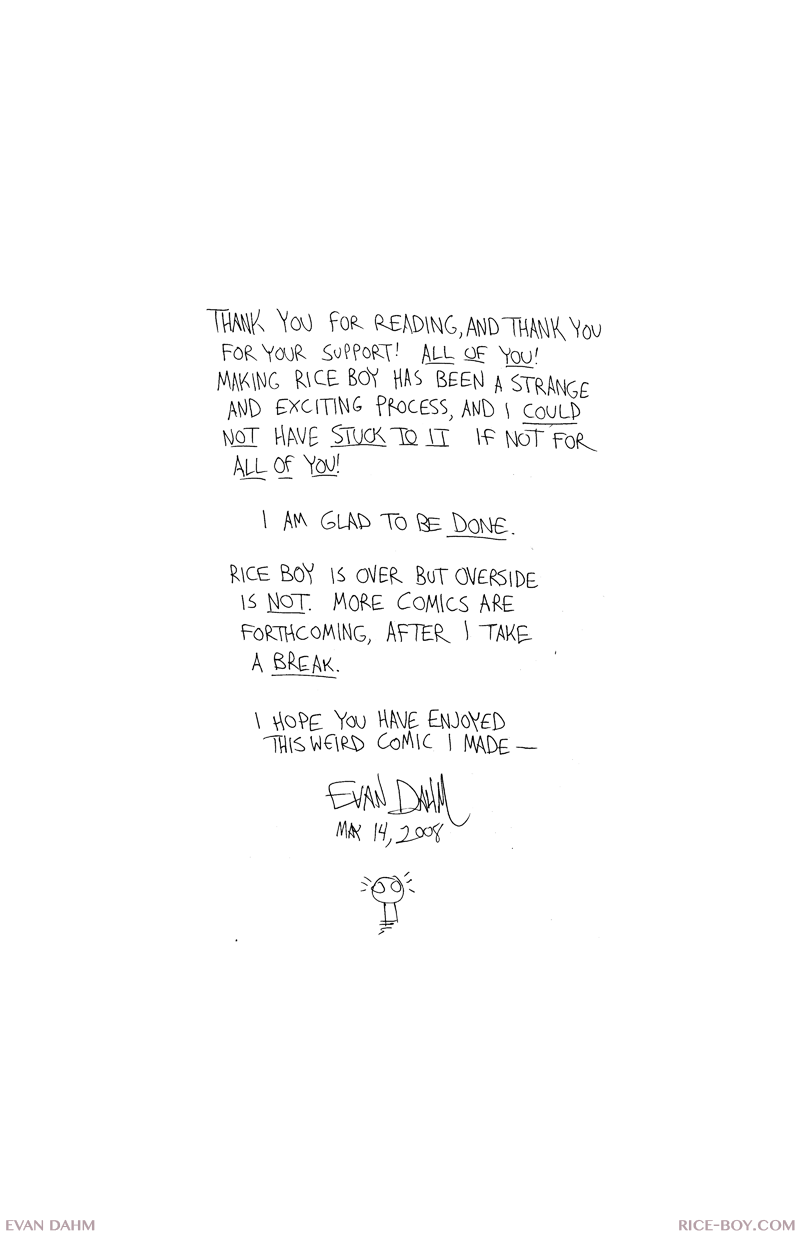 THANK YOU FOR READING, AND THANK YOU
FOR YOUR SUPPORT! ALL OF YOU!
MAKING RICE BOY HAS BEEN A STRANGE
AND EXCITING PROCESS, AND I COULD
NOT HAVE STUCK TO IT IF NOT FOR
ALL OF YOU!
I AM GLAD TO BE DONE.
RICE BOY IS OVER BUT OVERSIDE
IS NOT. MORE COMICS ARE
FORTHCOMING, AFTER I TAKE
A BREAK.
I HOPE YOU HAVE ENJOYED
THIS WEIRD COMIC I MADE —
EVAN DAHM
MAY 14, 2008
EVAN DAHM
RICE-BOY.COM